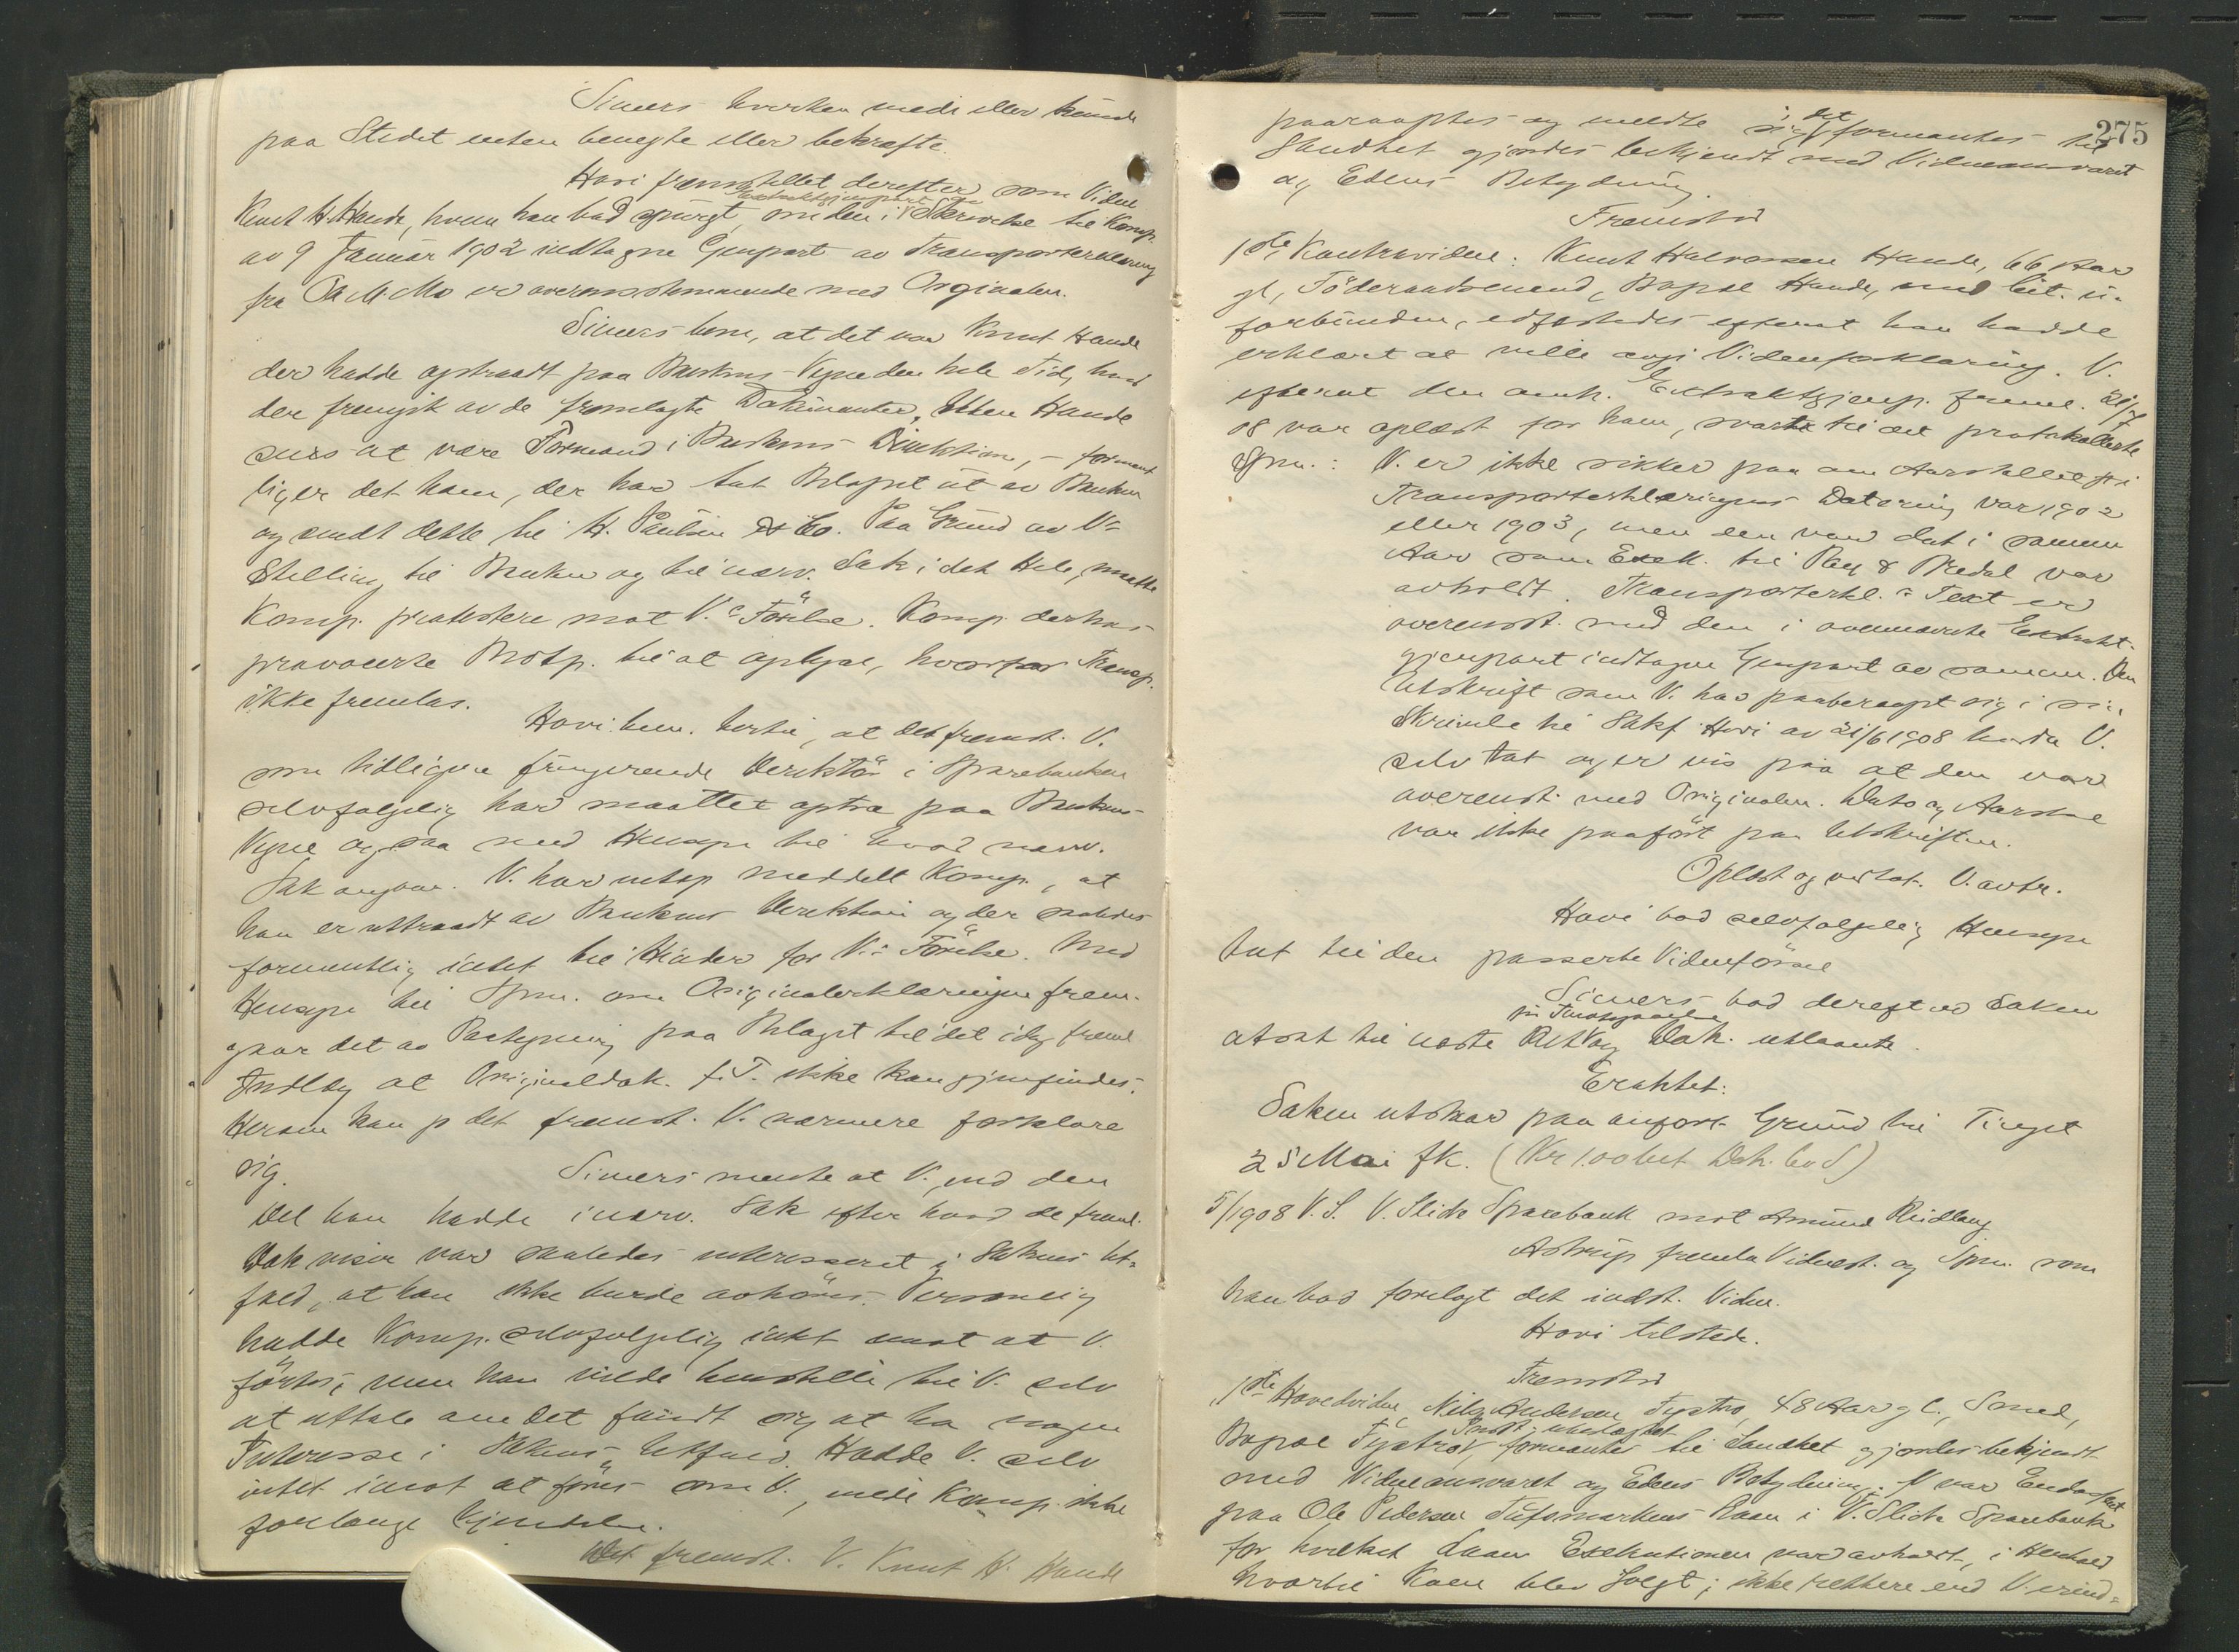 Simers hverken nede eller kunde
paa Stedet enten benegte eller bekræfte.
Hovi fremstillet derefter som Vidne
Knut H. Hande, hvem han bad spurgt, om den i Skrivelse til Komp.
av 9 Januar 1902 indtagne Genpart av Transporterklæring
fra O. M. Mo er overensstemmende med Orginalen.
Simers bem, at det var Knut Hande
der hadde optraadt paa Bankens Vegne den hele Tid, hvad
der fremgik av de fremlagte Dokumenter. Etter Hande
sees at være Formand i Bankens Direktion, – forment
lig er det ham, der har tat Beløpet ut av Banken
og sendt dette til H. Paulsen & Co. Paa Grund av V:s
Stilling til Banken og til nærv. Sak i det Hele, maatte
Komp. protestere mot V.s Förelse. Komp. derhos
provoserte Motp. til at oplyse, hvorfor Transp.
ikke fremlas.
Hovi bem. hertil, at det fremst. V.
som tidligere fungerende Direktör i Sparebanken
selvfølgelig har maattet optræ paa Bankens
Vegne ogsaa med Hensyn til hvad nærv.
Sak angaar. V. har netop meddelt Komp., at
han er uttraadt av Bankens Direktion og der saaledes
formentlig intet til Hinder for V:s Förelse. Med
Hensyn til Spm. om Originalerklæringen frem-
gaar det av Paategning paa Bilaget til det idag freml
Indlæg at Originaldok. f. T. ikke kan gjenfindes.
Herom kan jo det fremst. V. nærmere forklare
sig.
Simers mente at V., ved den
Del han hadde i nærv. Sak efter hvad de freml.
Dok viser var saaledes interesseret i Sakens Ut-
fald, at han ikke burde avhöres. Personlig
hadde Komp. selvfølgelig intet imot at V.
förtes, men han vilde henstille til V. selv
at uttale om det fandt sig at ha nogen
Interesse i Sakens Utfald. Hadde V. selv
intet imot at föres som V., vilde Komp. ikke
forlange Kjendelse.
Det fremst. V. Knut H. Hande
275
paaraaptes og meldte sig, idet formantes til
Sandhet gjordes bekjendt med Vidneansvaret
og Edens Betydning.
Fremstod
1ste Kontravidne: Knut Halvorsen Hande, 66 Aar
gl, Föderaadsmand, Bopæl Hande, med Cit. u-
forbunden, edfæstedes efterat han hadde
erklært at ville avgi Vidneforklaring. V.
efterat den omh. Extraktgjenp. freml. 21/7
08 var oplæst for ham, svarte til det protokollerte
Spm.: V. er ikke sikker paa om Aarstallet i
Transporterklæringens Datering var 1902
eller 1903, men den var dat i samme
Aar som Exek. til Ray & Bredal var
avholdt. Transporterkl.s Text er
overensst. med den i ovennævnte Extrakt-
gjenpart indtagne Genpart av samme. Den
Utskrift som V. har paaberaapt sig i sin
Skrivelse til Sakf. Hovi av 21/6 1908 hadde V.
selv tat og er vis paa at den var
overensst. med Originalen. Dato og Aarstal
var ikke paaført paa Utskriften.
Oplæst og vedtat. V. avtr.
Hovi bad selvfølgelig Hensyn
tat til den passerte Vidneförsel
Simers bad derefter Saken
utsat til næste Ret og Dok. utlaante.
Eraktet:
Saken utstaar paa anført Grund til Tinget
25 Mai fk. (Kr 1.00 bet Dok. lev S)
5/1908 V.S. V. Slidre Sparebank mot Amund Reidlang
Astrup fremla Vidnest. og Spm. som
han bad forelagt det indst. Vidne.
Hovi tilstede.
Fremstod
1ste Hovedvidne, Nils Andersen Fystro, 48 Aar gl., Smed,
Bopæl Fystro, formantes til Sandhet gjordes bekjendt
med Vidneansvaret og Edens Betydning. V var
paa Ole Pedersen Laan i V. Slidre Sparebank
for hvilket Laan Exekutionen var avholdt, i Henhold
hvortil Kaen blev solgt; ikke rettere end V. erind=